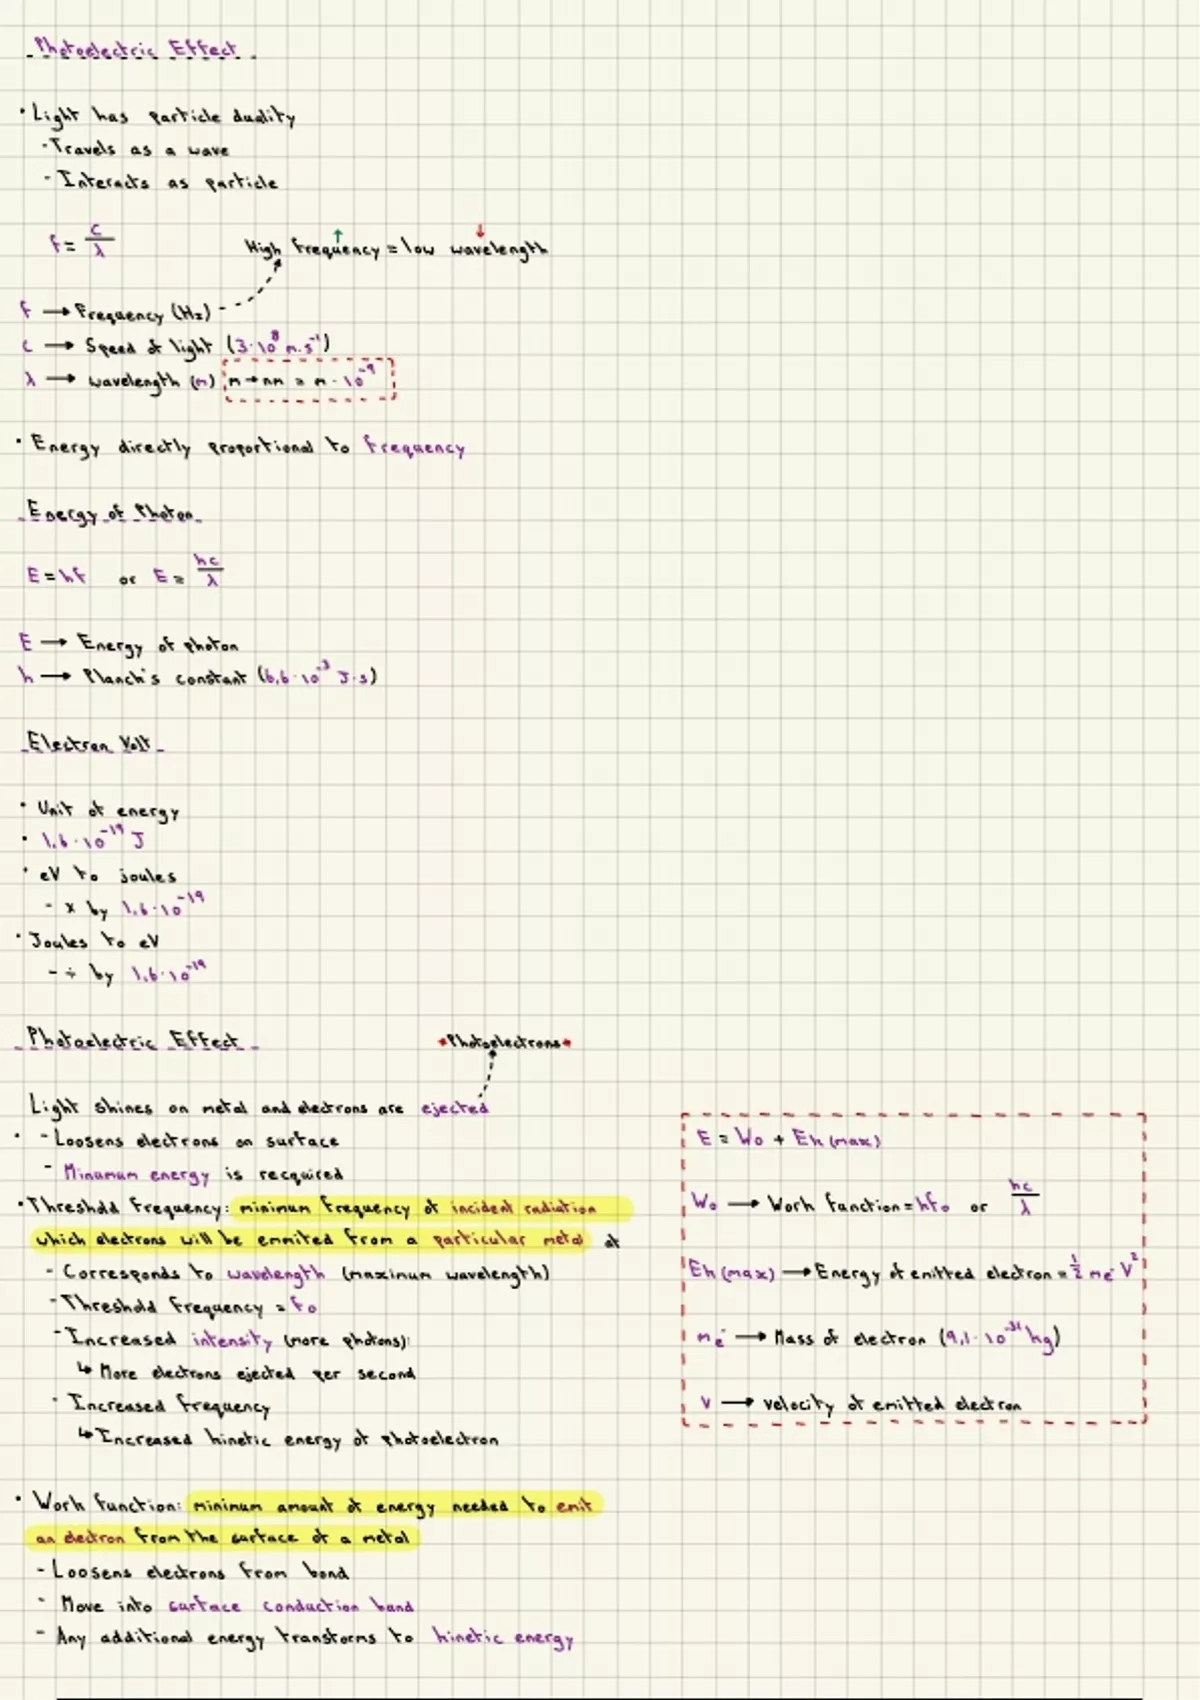 Photoelectric Effect
• Light has particle duality
- Travels as a wave
- Interacts as particle
f = c/λ
High frequency = low wavelength
f → Frequency (Hz)
c → Speed of light (3·10⁸ m.s⁻¹)
λ → wavelength (m) m → nm = m · 10⁻⁹
• Energy directly proportional to frequency
Energy of Photon
E = hf or E = hc/λ
E → Energy of photon
h → Planch's constant (6,6·10⁻³ J·s)
Electron Volt
• Unit of energy
• 1,6·10⁻¹⁹ J
• eV to joules
- x by 1,6·10⁻¹⁹
• Joules to eV
- ÷ by 1,6·10⁻¹⁹
Photoelectric Effect
*Photoelectrons*
Light shines on metal and electrons are ejected
• - Loosens electrons on surface
- Minumum energy is recquired
• Threshold frequency: minimum frequency of incident radiation
which electrons will be emmited from a particular metal at
- Corresponds to wavelength (maximum wavelength)
- Threshold frequency = f₀
- Increased intensity (more photons):
↳ More electrons ejected per second
- Increased frequency
↳ Increased kinetic energy of photoelectron
• Work function: minimum amount of energy needed to emit
an electron from the surface of a metal
- Loosens electrons from bond
- Move into surface conduction band
- Any additional energy transforms to kinetic energy
E = W₀ + Ek (max)
W₀ → Work function = hf₀ or hc/λ
Ek (max) → Energy of emitted electron = ½ me⁻ V²
me⁻ → Mass of electron (9,1·10⁻³¹ kg)
v → velocity of emitted electron